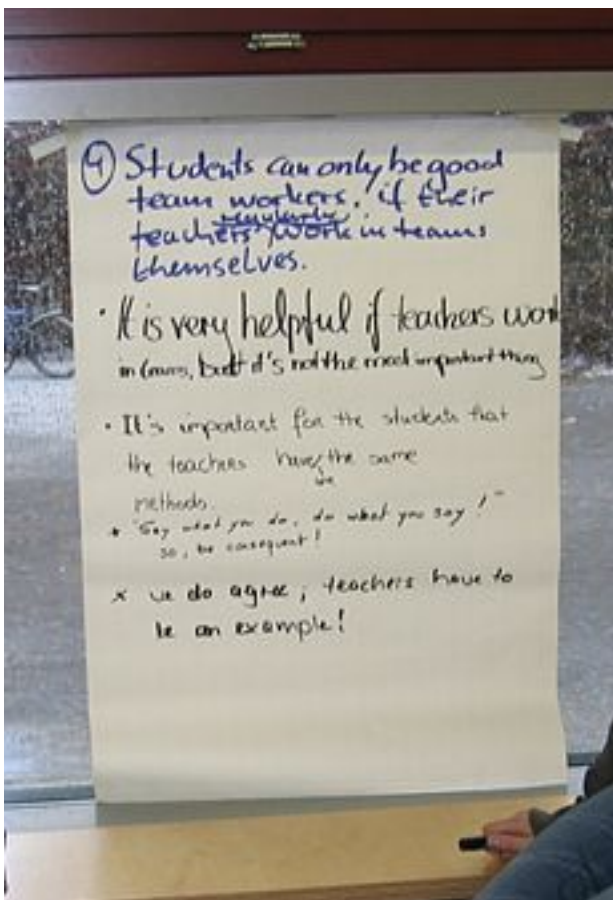 ④ Students can only be good
team workers, if their
regularly
teachers work in teams
themselves.
· It is very helpful if teachers work
in teams, but it's not the most important thing
· It's important for the students that
the teachers have the same
methods.
* "Say what you do, do what you say!"
so, be consequent!
x we do agree; teachers have to
be an example!